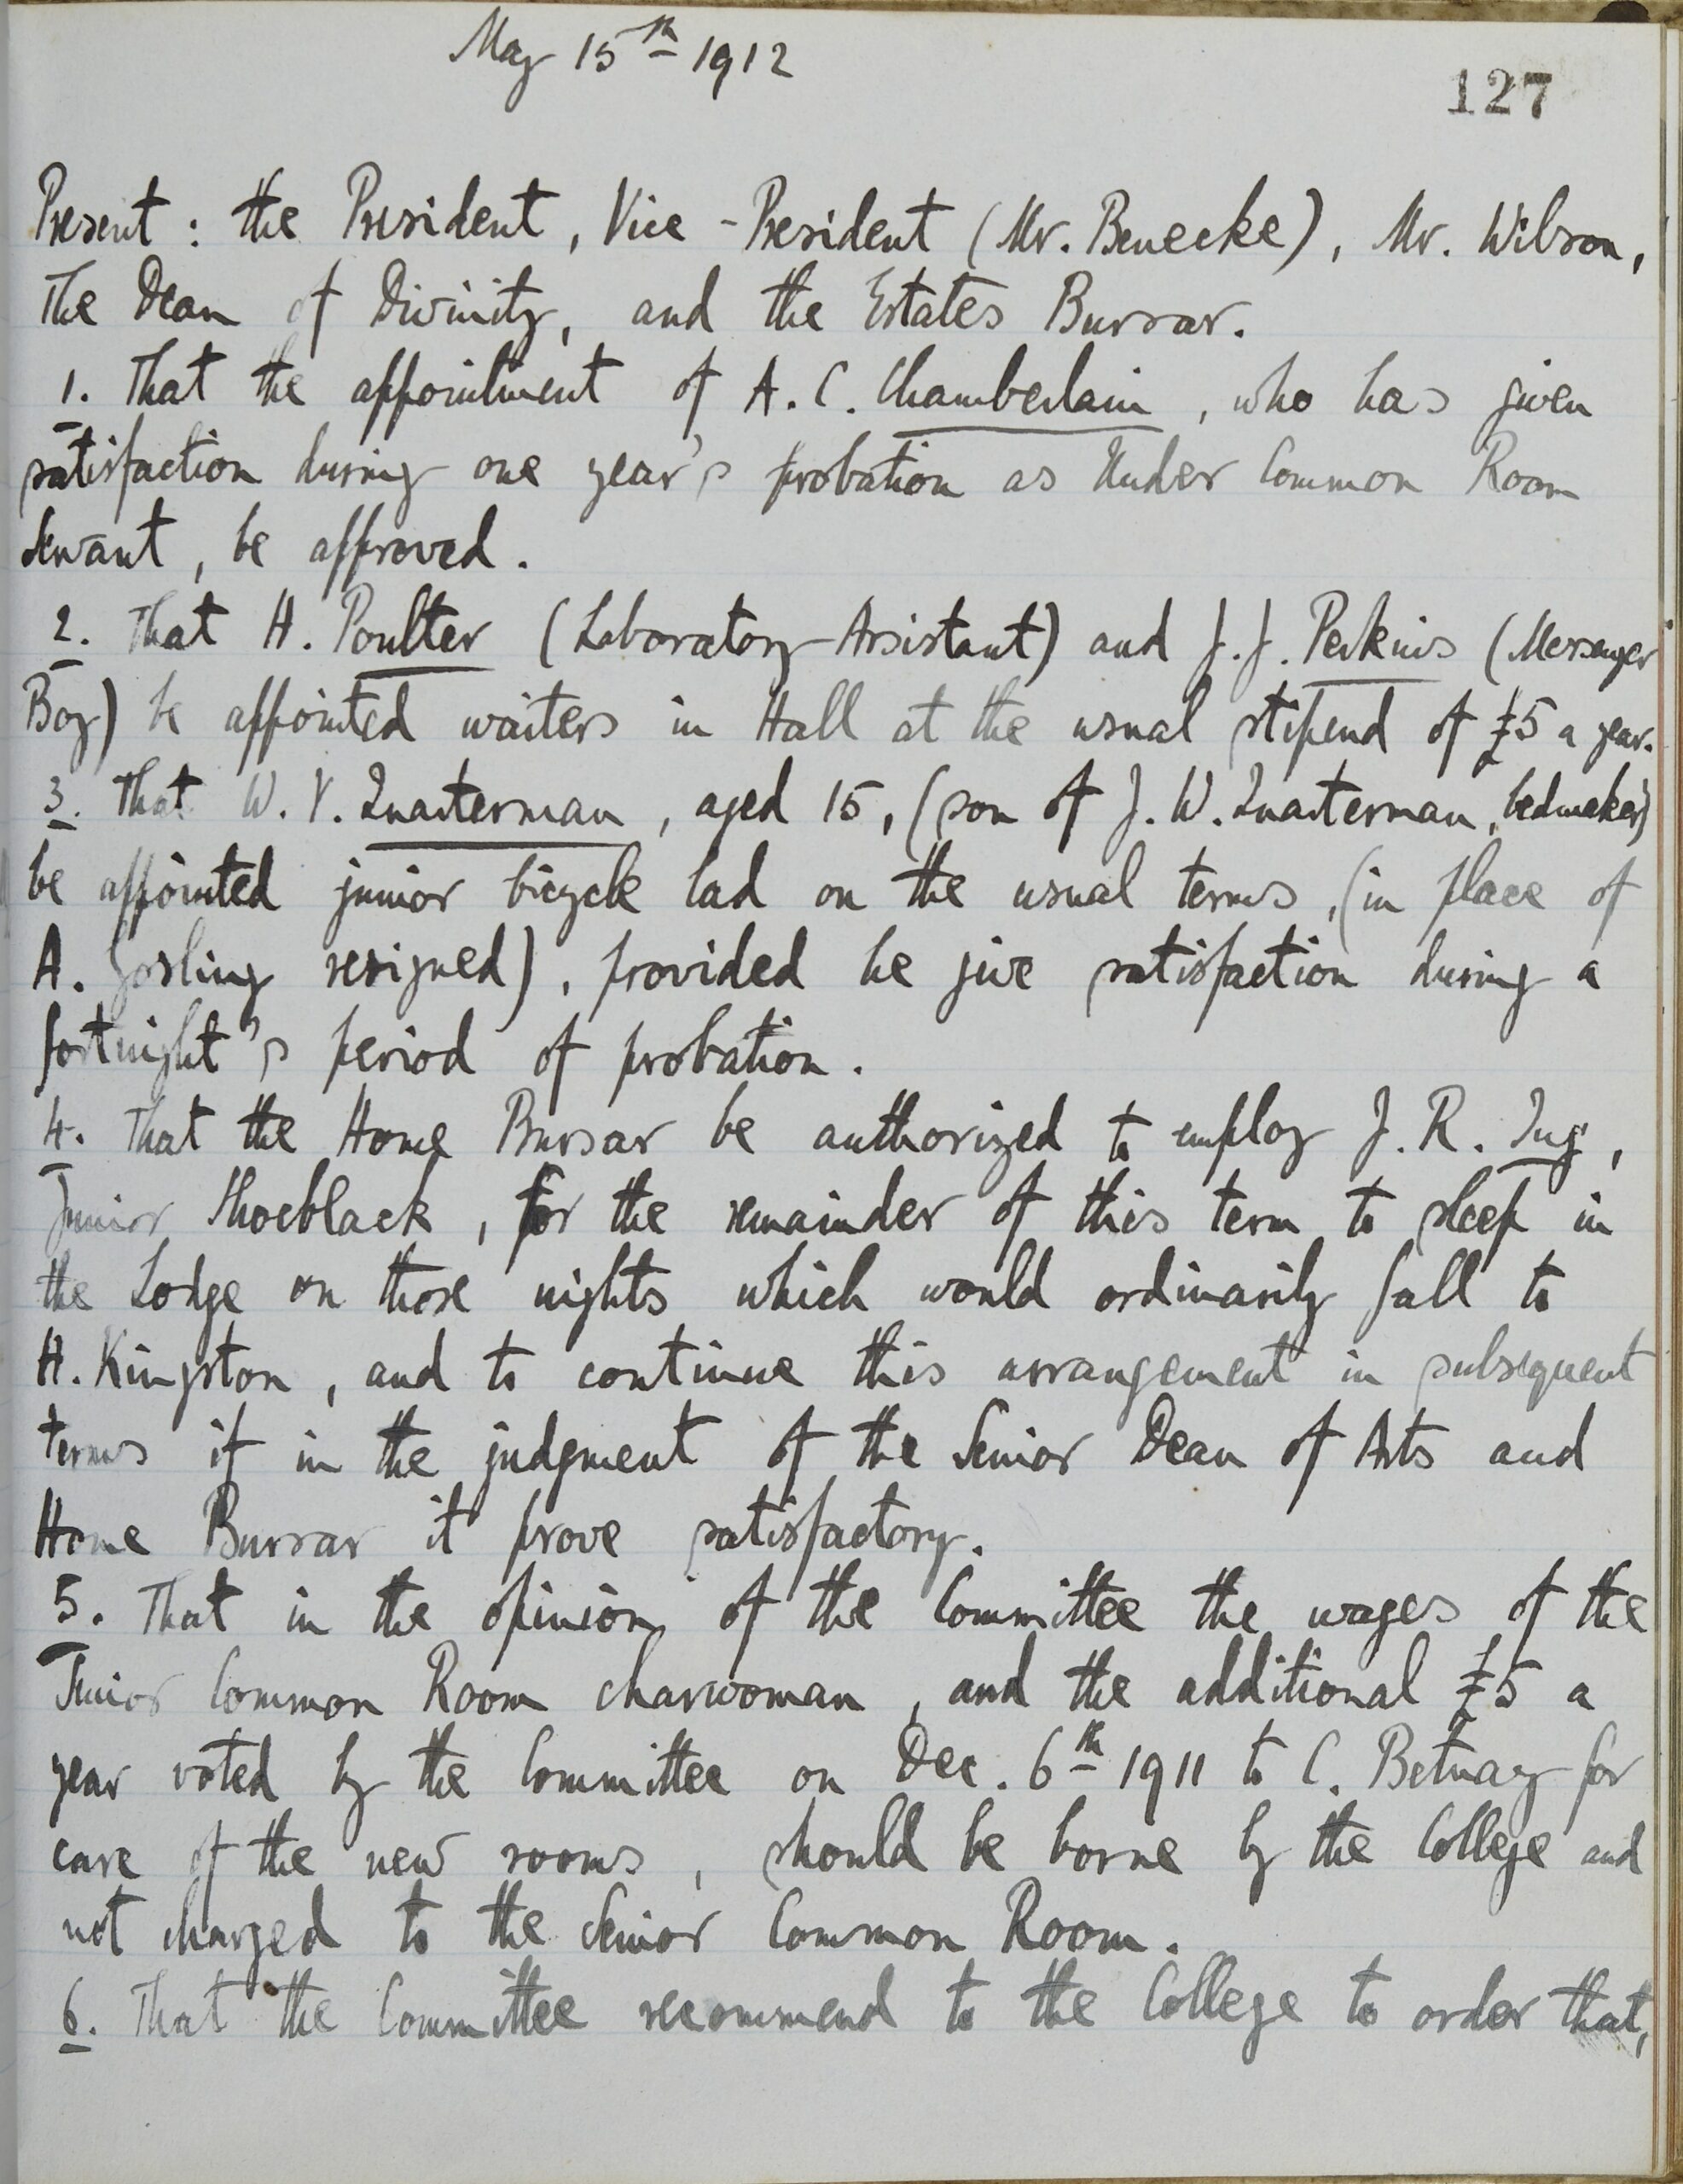 May 15th 1912
127
Present : the President, Vice-President (Mr. Benecke), Mr. Wilson,
The Dean of Divinity, and the Estates Bursar.
1. That the appointment of A. C. Chamberlain, who has given
satisfaction during one year's probation as Under Common Room
Servant, be approved.
2. That H. Poulter (Laboratory-Assistant) and J. J. Perkins (Messenger
Boy) be appointed waiters in Hall at the usual stipend of £5 a year.
3. That W. V. Quarterman, aged 15, (son of J. W. Quarterman, bedmaker)
be appointed junior bicycle lad on the usual terms, (in place of
A. Gosling resigned), provided he give satisfaction during a
fortnight's period of probation.
4. That the Home Bursar be authorized to employ J. R. Ing,
Junior Shoeblack, for the remainder of this term to sleep in
the Lodge on those nights which would ordinarily fall to
H. Kingston, and to continue this arrangement in subsequent
terms if in the judgment of the Senior Dean of Arts and
Home Bursar it prove satisfactory.
5. That in the opinion of the Committee the wages of the
Senior Common Room charwoman, and the additional £5 a
year voted by the Committee on Dec. 6th 1911 to C. for
care of the new rooms, should be borne by the College and
not charged to the Senior Common Room.
6. That the Committee recommend to the College to order that,